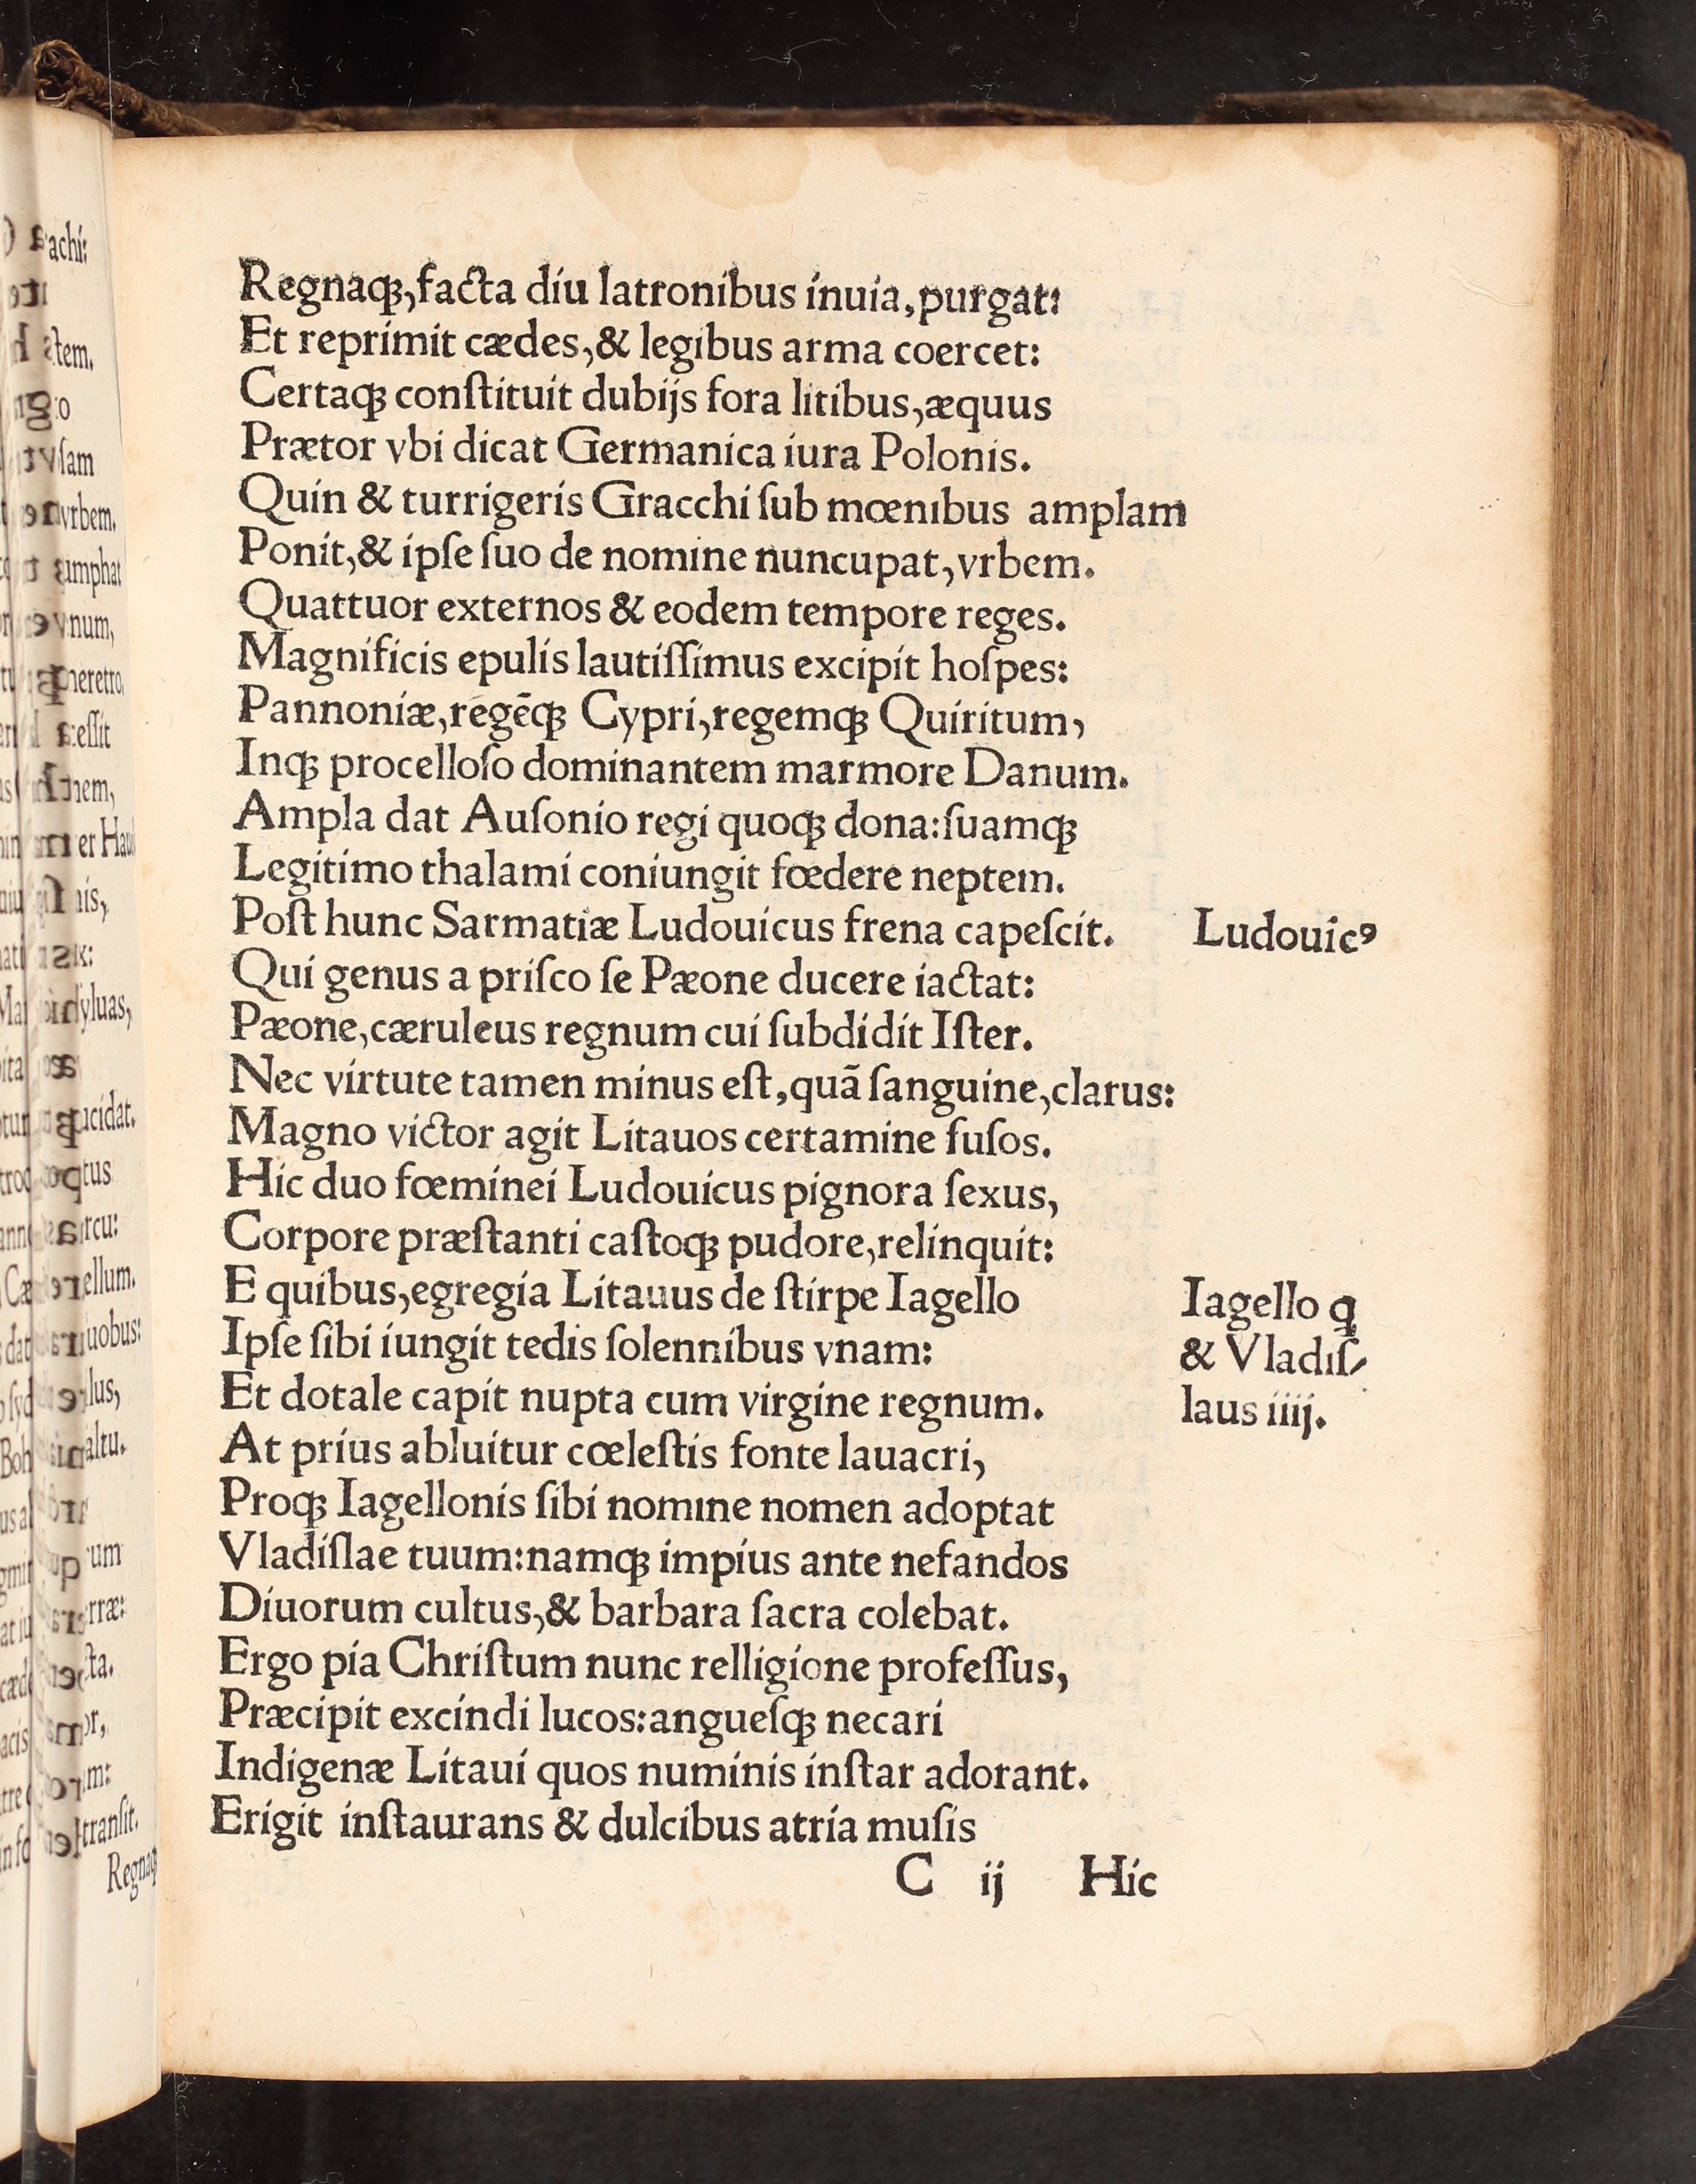 Regnaqꝫ,facta diu latronibus inuia,purgat:
Et reprimit cædes,& legibus arma coercet:
Certaqꝫ conſtituit dubijs fora litibus,æquus
Prætor vbi dicat Germanica iura Polonis.
Quin & turrigeris Gracchi ſub mœnibus amplam
Ponit,& ipſe ſuo de nomine nuncupat,vrbem.
Quattuor externos & eodem tempore reges.
Magnificis epulis lautiſſimus excipit hoſpes:
Pannoniæ,regēqꝫ Cypri,regemqꝫ Quiritum,
Inqꝫ procelloſo dominantem marmore Danum.
Ampla dat Auſonio regi quoqꝫ dona:ſuamqꝫ
Legitimo thalami coniungit fœdere neptem.
Poſt hunc Sarmatiæ Ludouicus frena capeſcit. Ludouicꝰ
Qui genus a priſco ſe Pæone ducere iactat:
Pæone,cæruleus regnum cui ſubdidit Iſter.
Nec virtute tamen minus eſt,quā ſanguine,clarus:
Magno victor agit Litauos certamine fuſos.
Hic duo fœminei Ludouicus pignora ſexus,
Corpore præſtanti caſtoqꝫ pudore,relinquit:
E quibus,egregia Litauus de ſtirpe Iagello Iagello q
Ipſe ſibi iungit tedis ſolennibus vnam: & Vladiſ⸗
Et dotale capit nupta cum virgine regnum. laus iiij.
At prius abluitur cœleſtis fonte lauacri,
Proqꝫ Iagellonis ſibi nomine nomen adoptat
Vladiſlae tuum:namqꝫ impius ante nefandos
Diuorum cultus,& barbara ſacra colebat.
Ergo pia Chriſtum nunc relligione profeſſus,
Præcipit excindi lucos:angueſqꝫ necari
Indigenæ Litaui quos numinis inſtar adorant.
Erigit inſtaurans & dulcibus atria muſis
C ij Hic